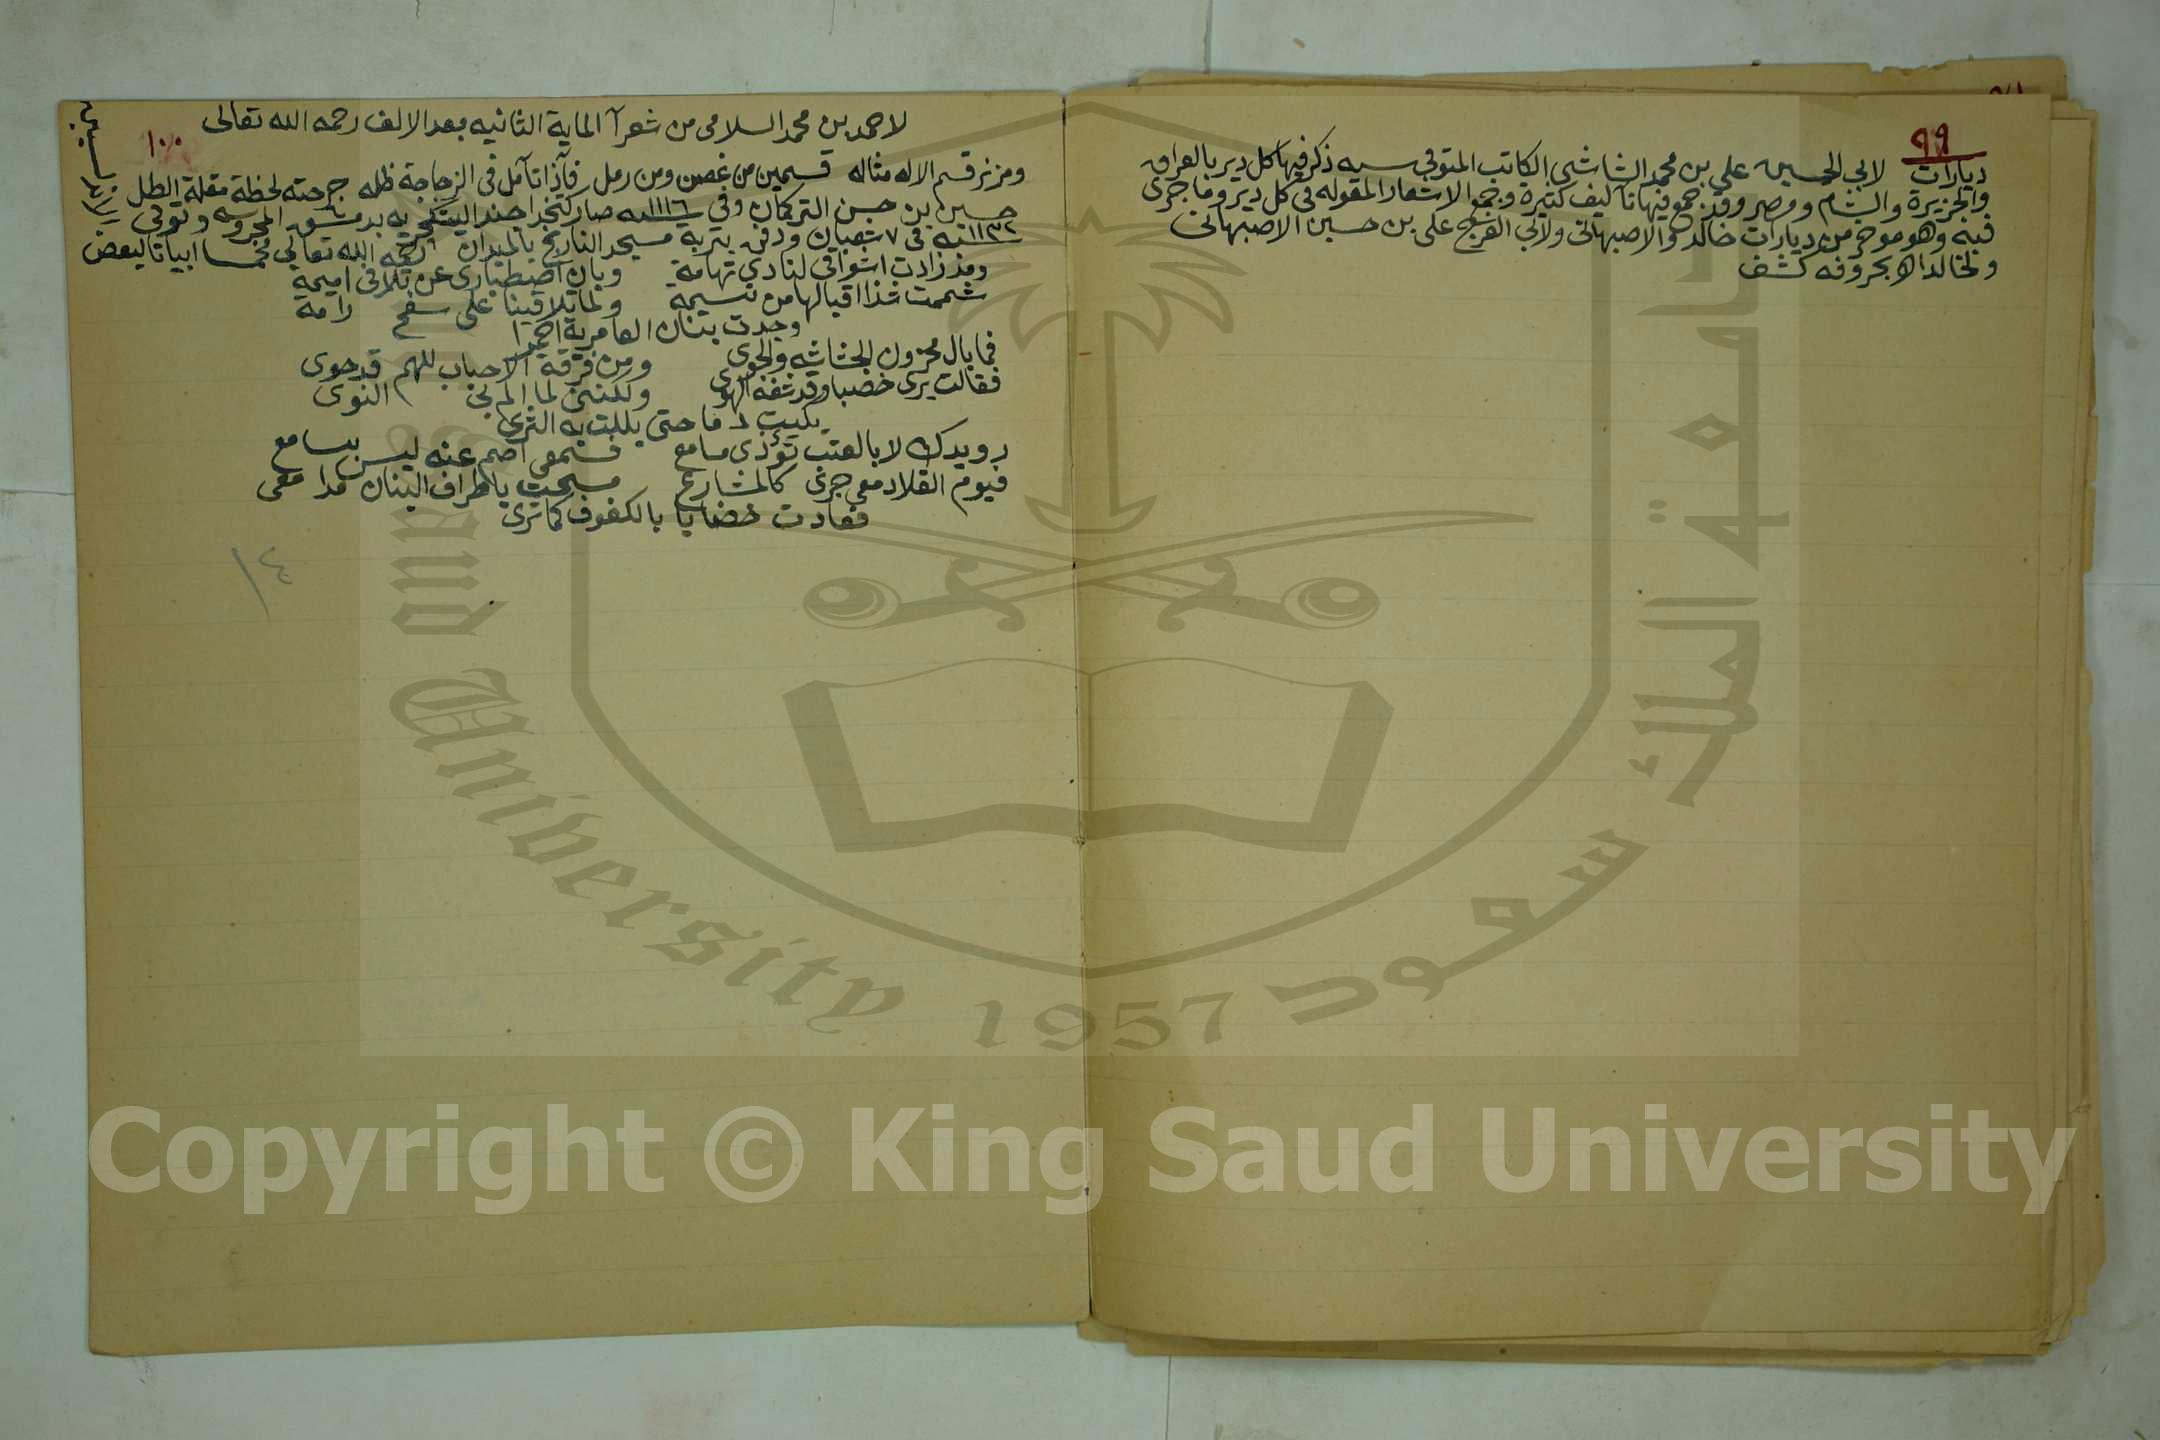 ٩٩
ديارات لابي الحسين علي بن محمد الشاشي الكاتب المتوفي سنه ذكر فيها كل دير بالعراق
والجزيرة والشام ومصر وقد جمع فيها تآليف كثيرة وجمع الاشعار المقوله في كل دير وما جرى
فيه وهو موجز من ديارات خالد والاصبهاني ولابي الفرج علي بن حسين الاصبهاني
ولخالد اه بحروفه كشف
١٠٠
لاحمد بن محمد السلامي من شعرآ الماية الثانيه بعد الالف رحمه الله تعالى
ومزنر قسم الاله مثاله قسمين من غصن ومن رمل فآذا تآمل في الزجاجة ظله جرحته لحظة مقلة الطل
حسين بن حسن التركمان وفي ١١١٦ سنه صار كتخدا جند بدمشق المحروسه وتوفى
١١٣٢ سنه في ٧ شعبان ودفن بتربة مسجد النارنج بالميدان رحمه الله تعالى مخمسا ابياتا لبعض
ومذ زادت اشواقي لنادي تهامة وبان اصطباري عن تلافي اميمة
شممت شذا اقبالها من نسيمة ولما تلاقينا على سفح رامة
وجدت بنان العامرية احمرا
فما بال محزون الحشاشه والجوى ومن فرقة الاحباب للهم قد حوى
فقالت يرى خضبا وقد شفه الهوى ولكنني لما الم بي النوى
بكيت دما حتى بللت به الثرى
رويدك لا بالعتب تؤذي مسامع فسمعي اصم عنه ليس بسامع
فيوم القلا دمعي جرى كالمشارع مسحت باطراف البنان مدامعي
فعادت خضابا بالكفوف كما ترى
١٤
Copyright © King Saud University
جامعة الملك سعود
University 1957